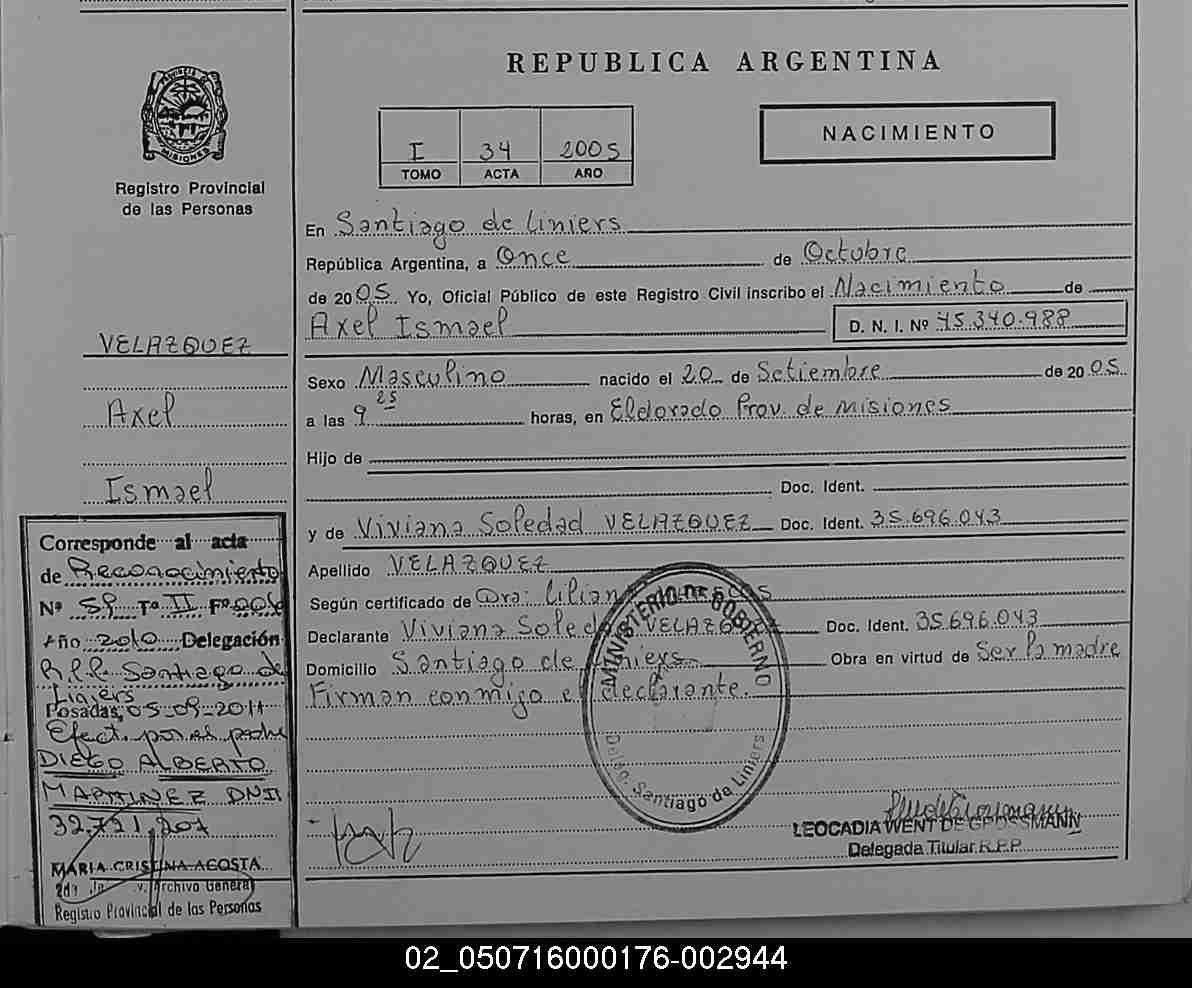 PROVINCIA DE
MISIONES
Registro Provincial
de las Personas
VELAZQUEZ
Axel
Ismael
Corresponde al acta
de Reconocimiento
Nº 59 Tº II Fº 006
Año 2010 Delegación
R.P.P. Santiago de
Liniers
Posadas, 05-09-2011
Efect. por el padre
DIEGO ALBERTO
MARTINEZ DNI.
32.721.207
MARIA CRISTINA ACOSTA
Archivo General
Registro Provincial de las Personas
REPUBLICA ARGENTINA
I 34 2005
TOMO ACTA AÑO
NACIMIENTO
En Santiago de Liniers
República Argentina, a Once de Octubre
de 2005 Yo, Oficial Público de este Registro Civil inscribo el Nacimiento de
Axel Ismael D. N. I. Nº 45.340.988
Sexo Masculino nacido el 20 de Setiembre de 2005
a las 9 25 horas, en Eldorado Prov. de Misiones
Hijo de
Doc. Ident.
y de Viviana Soledad VELAZQUEZ Doc. Ident. 35.696.043
Apellido VELAZQUEZ
Según certificado de Dra: Lilian
Declarante Viviana Soledad VELAZQUEZ Doc. Ident. 35.696.043
Domicilio Santiago de Liniers Obra en virtud de Ser la madre
Firman conmigo el declarante.
MINISTERIO DE GOBIERNO
Deleg. Santiago de Liniers
LEOCADIA WENT DE GROSSMANN
Delegada Titular R.P.P.
02_050716000176-002944